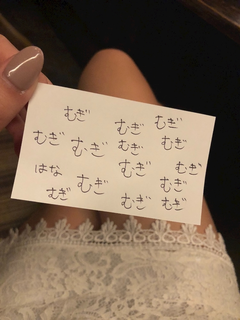 むぎ
むぎ
むぎ
むぎ
むぎ
むぎ
むぎ
はな
むぎ
むぎ
むぎ
むぎ
むぎ
むぎ
むぎ